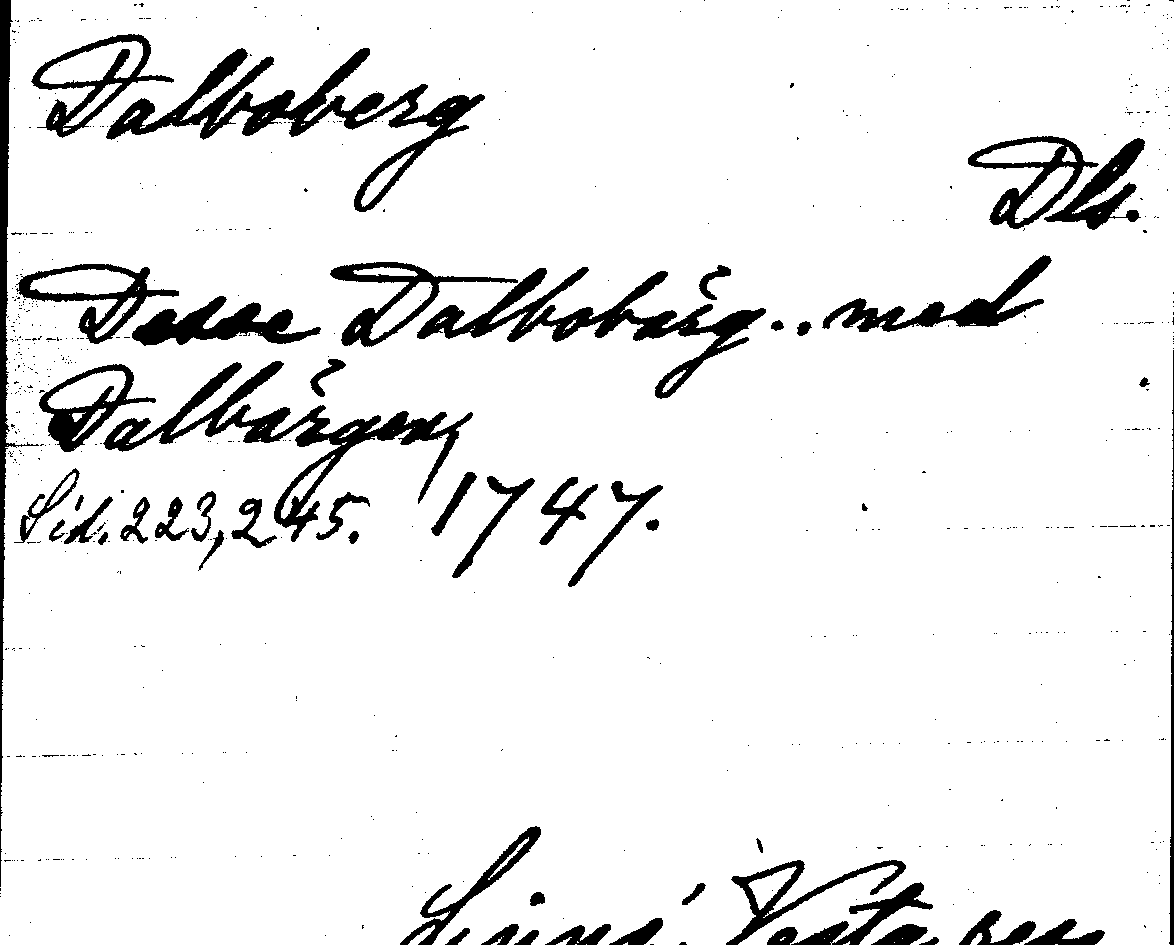 Dalboberg
Dls.
Desse Dalbobärg.. med
Dalbärgen,
Sid. 223, 245. 1747.
Linné, Västg. resa